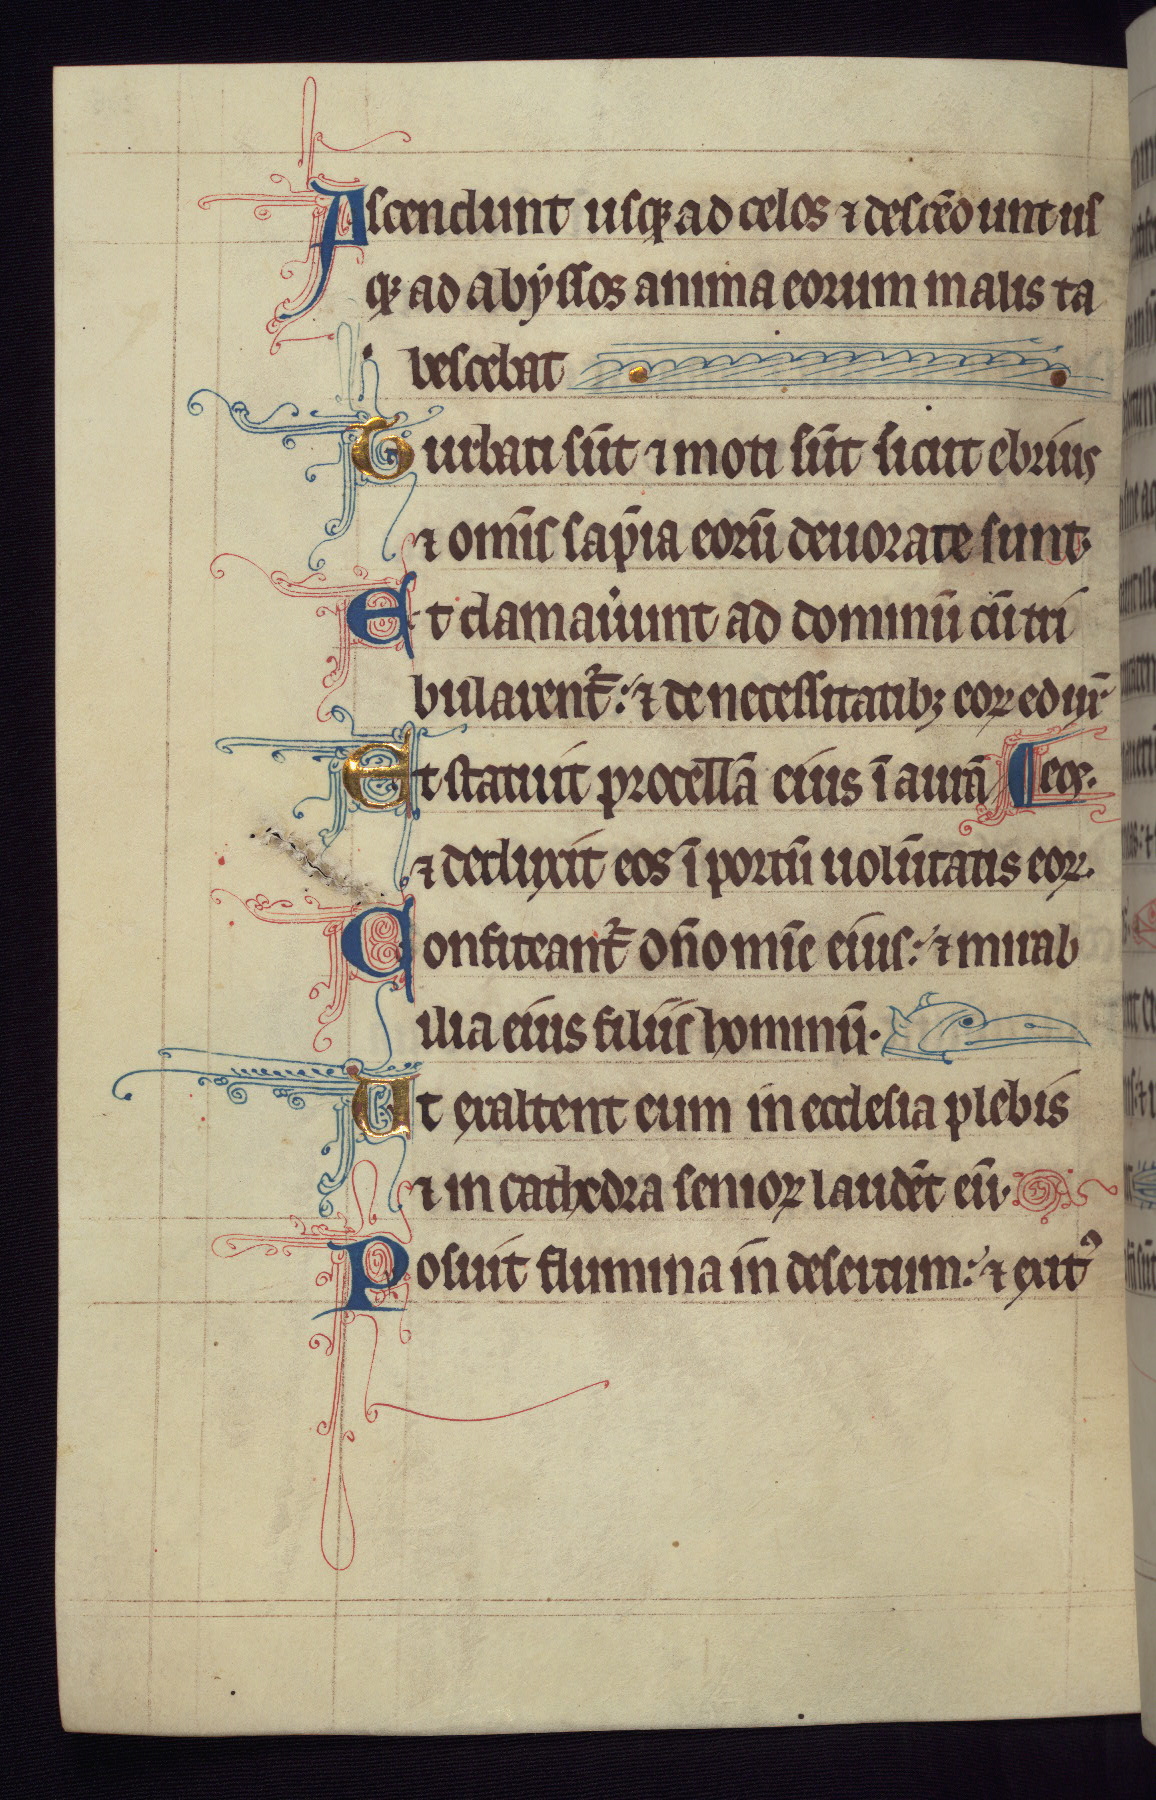 Ascendunt usq; ad celos ⁊ descēdunt us
q; ad abyssos anima eorum in malis ta
bescebat
Turbati sūt ⁊ moti sūt sicut ebrius
⁊ om̄is sap̄ia eorū deuorate sunt·
Et clamauͥunt ad dominū cū tri
bularent᷑: ⁊ de necessitatib; eoꝝ eduxͥ·
Et statuit procellā eius ī aurā
eos·
⁊ deduxit eos ī portū uolūtatis eoꝝ·
Confiteant᷑ dn̄o mīe eius: ⁊ mirab
ilia eius filiis hominū·
Ut exaltent eum in ecclesia plebis
⁊ in cathedra senioꝝ laudēt eū·
Posuit flumina in desertum: ⁊ exit᷒